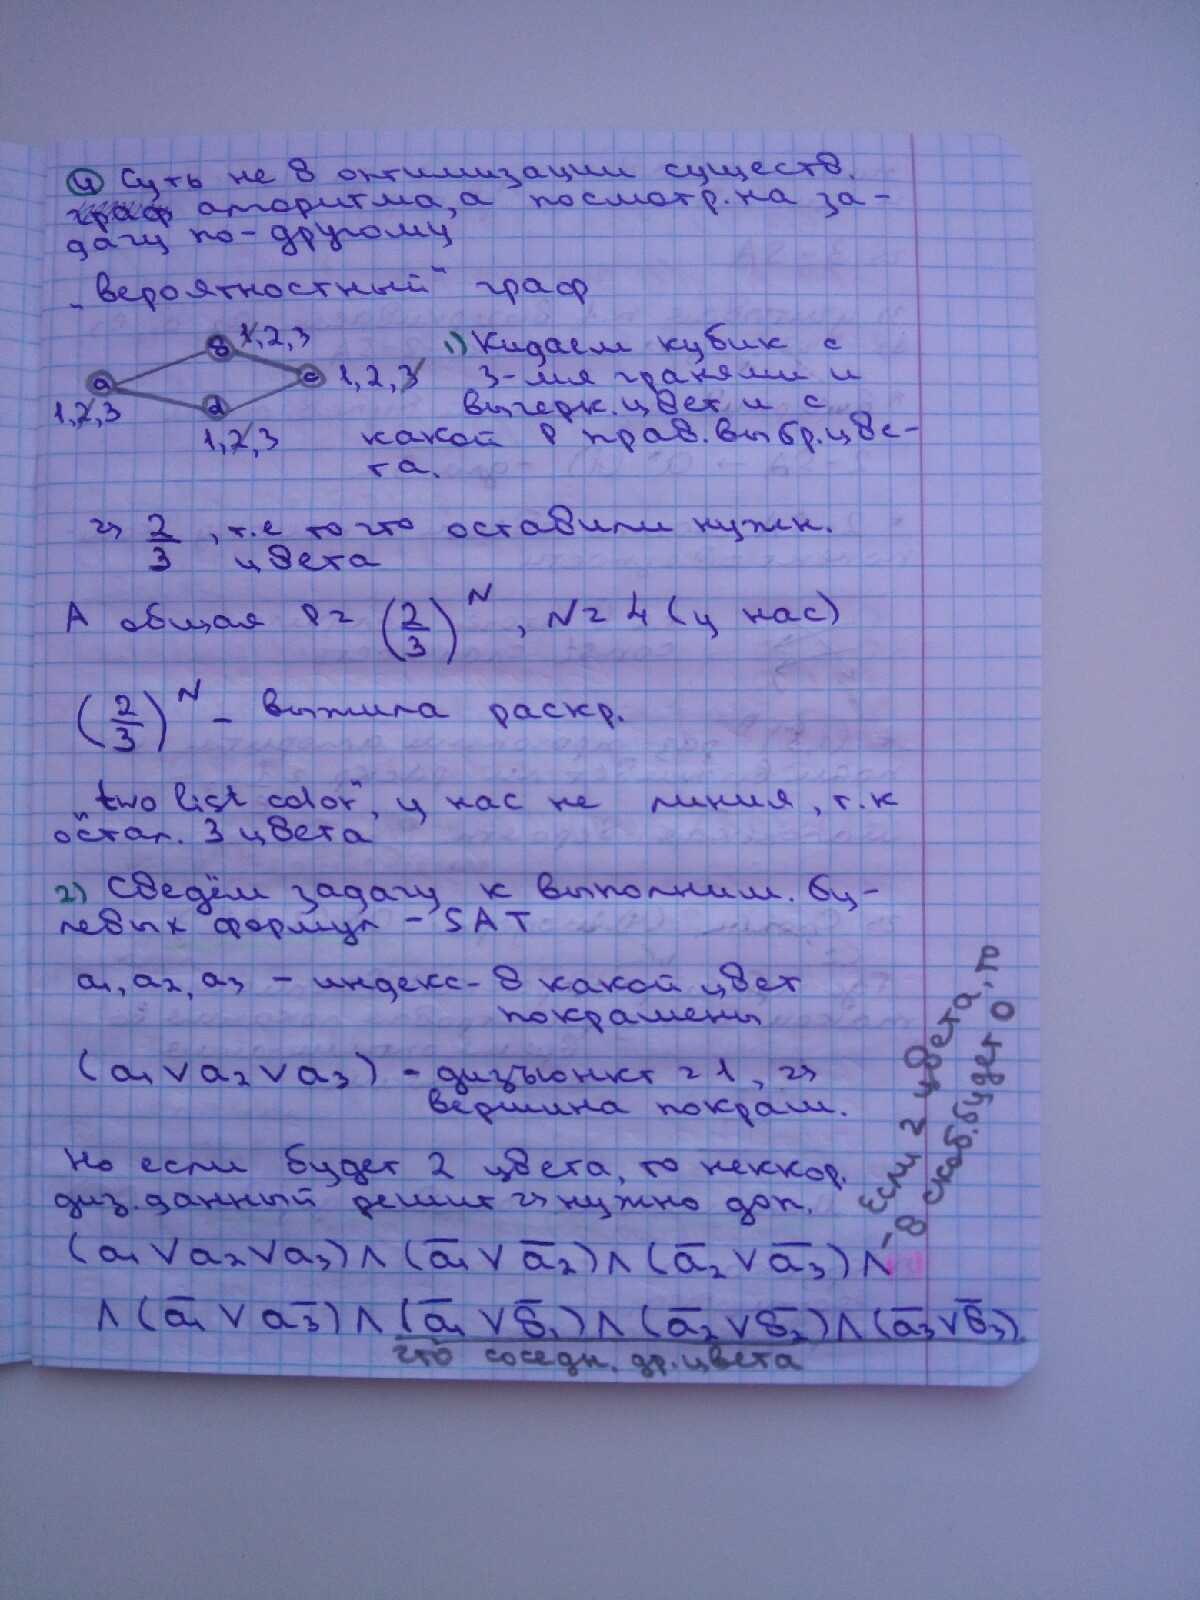 ④ Суть не в оптимизации существ.
граф алгоритма, а посмотр. на за-
дачу по-другому
„вероятностный" граф
в 1,2,3
a 1,2,3
c 1,2,3
d 1,2,3
1) Кидаем кубик с
3-мя гранями и
вычерк. цвет и с
какой P прав. выбр. цве-
та.
=> 2/3, т.е то что оставили нужн.
цвета
А общая P = (2/3)^N, N = 4 (у нас)
(2/3)^N - выжила раскр.
„two list color", у нас не линия, т.к
остал. 3 цвета
2) Сведём задачу к выполним. бу-
левых формул - SAT
a1, a2, a3 - индекс - в какой цвет
покрашены
(a1 ∨ a2 ∨ a3) - дизъюнкт = 1, =>
вершина покраш.
Но если будет 2 цвета, то неккор.
диз. данный решит => нужно доп.
(a1 ∨ a2 ∨ a3) ∧ (a̅1 ∨ a̅2) ∧ (a̅2 ∨ a̅3) ∧
∧ (a̅1 ∨ a̅3) ∧ (a̅1 ∨ в̅1) ∧ (a̅2 ∨ в̅2) ∧ (a̅3 ∨ в̅3)
что соседн. др. цвета
- Если 2 цвета, то
в скоб. будет 0